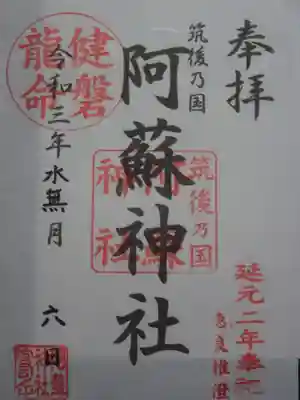 奉拝
筑後乃国
阿蘇神社
令和三年水無月
六日
健磐
龍命
筑後乃国
阿蘇
神社
延元二年奉祀
恵良惟澄